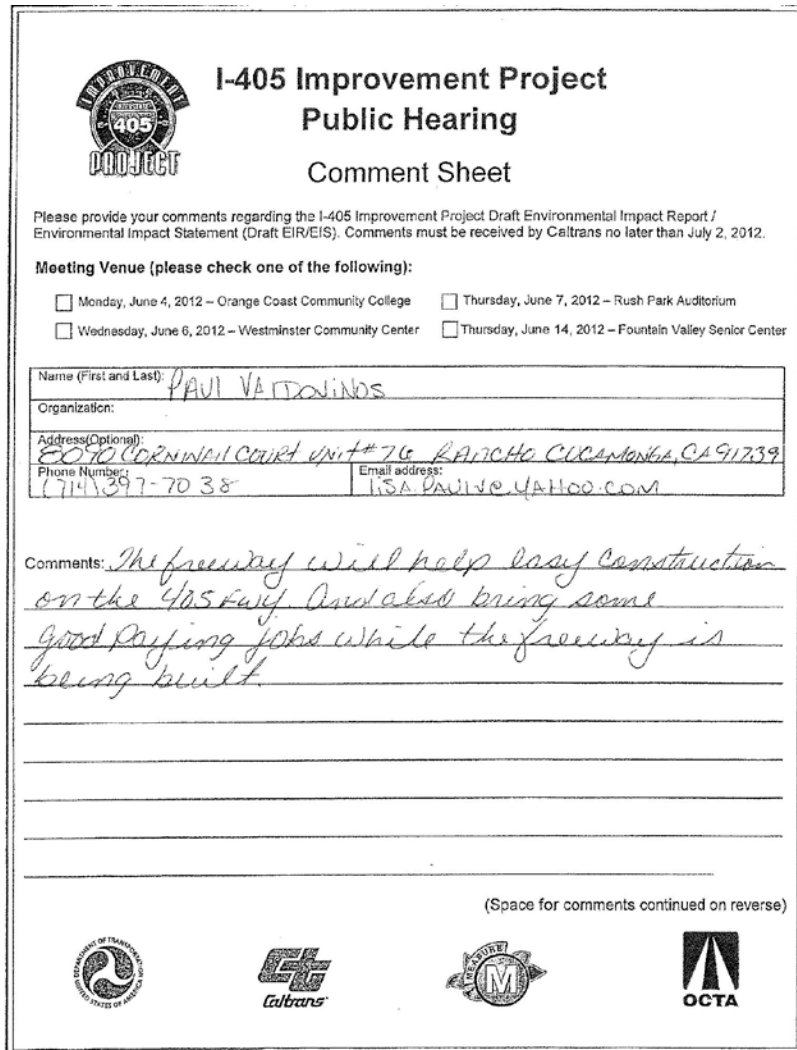 IMPROVEMENT
405
PROJECT
I-405 Improvement Project
Public Hearing
Comment Sheet
Please provide your comments regarding the I-405 Improvement Project Draft Environmental Impact Report /
Environmental Impact Statement (Draft EIR/EIS). Comments must be received by Caltrans no later than July 2, 2012.
Meeting Venue (please check one of the following):
Monday, June 4, 2012 – Orange Coast Community College
Thursday, June 7, 2012 – Rush Park Auditorium
Wednesday, June 6, 2012 – Westminster Community Center
Thursday, June 14, 2012 – Fountain Valley Senior Center
Name (First and Last): PAUl
Organization:
Address(Optional):
8090 CORNWAll COURT UNIT# 76 RANCHO CUCAMONGA, CA 91739
Phone Number: (714) 397-7038
Email address:
Comments: The freeway will help easy construction
on the 405 Fwy. And also bring some
good Paying jobs while the freeway is
being built.
(Space for comments continued on reverse)
DEPARTMENT OF TRANSPORTATION
UNITED STATES OF AMERICA
Caltrans
MEASURE
M
OCTA